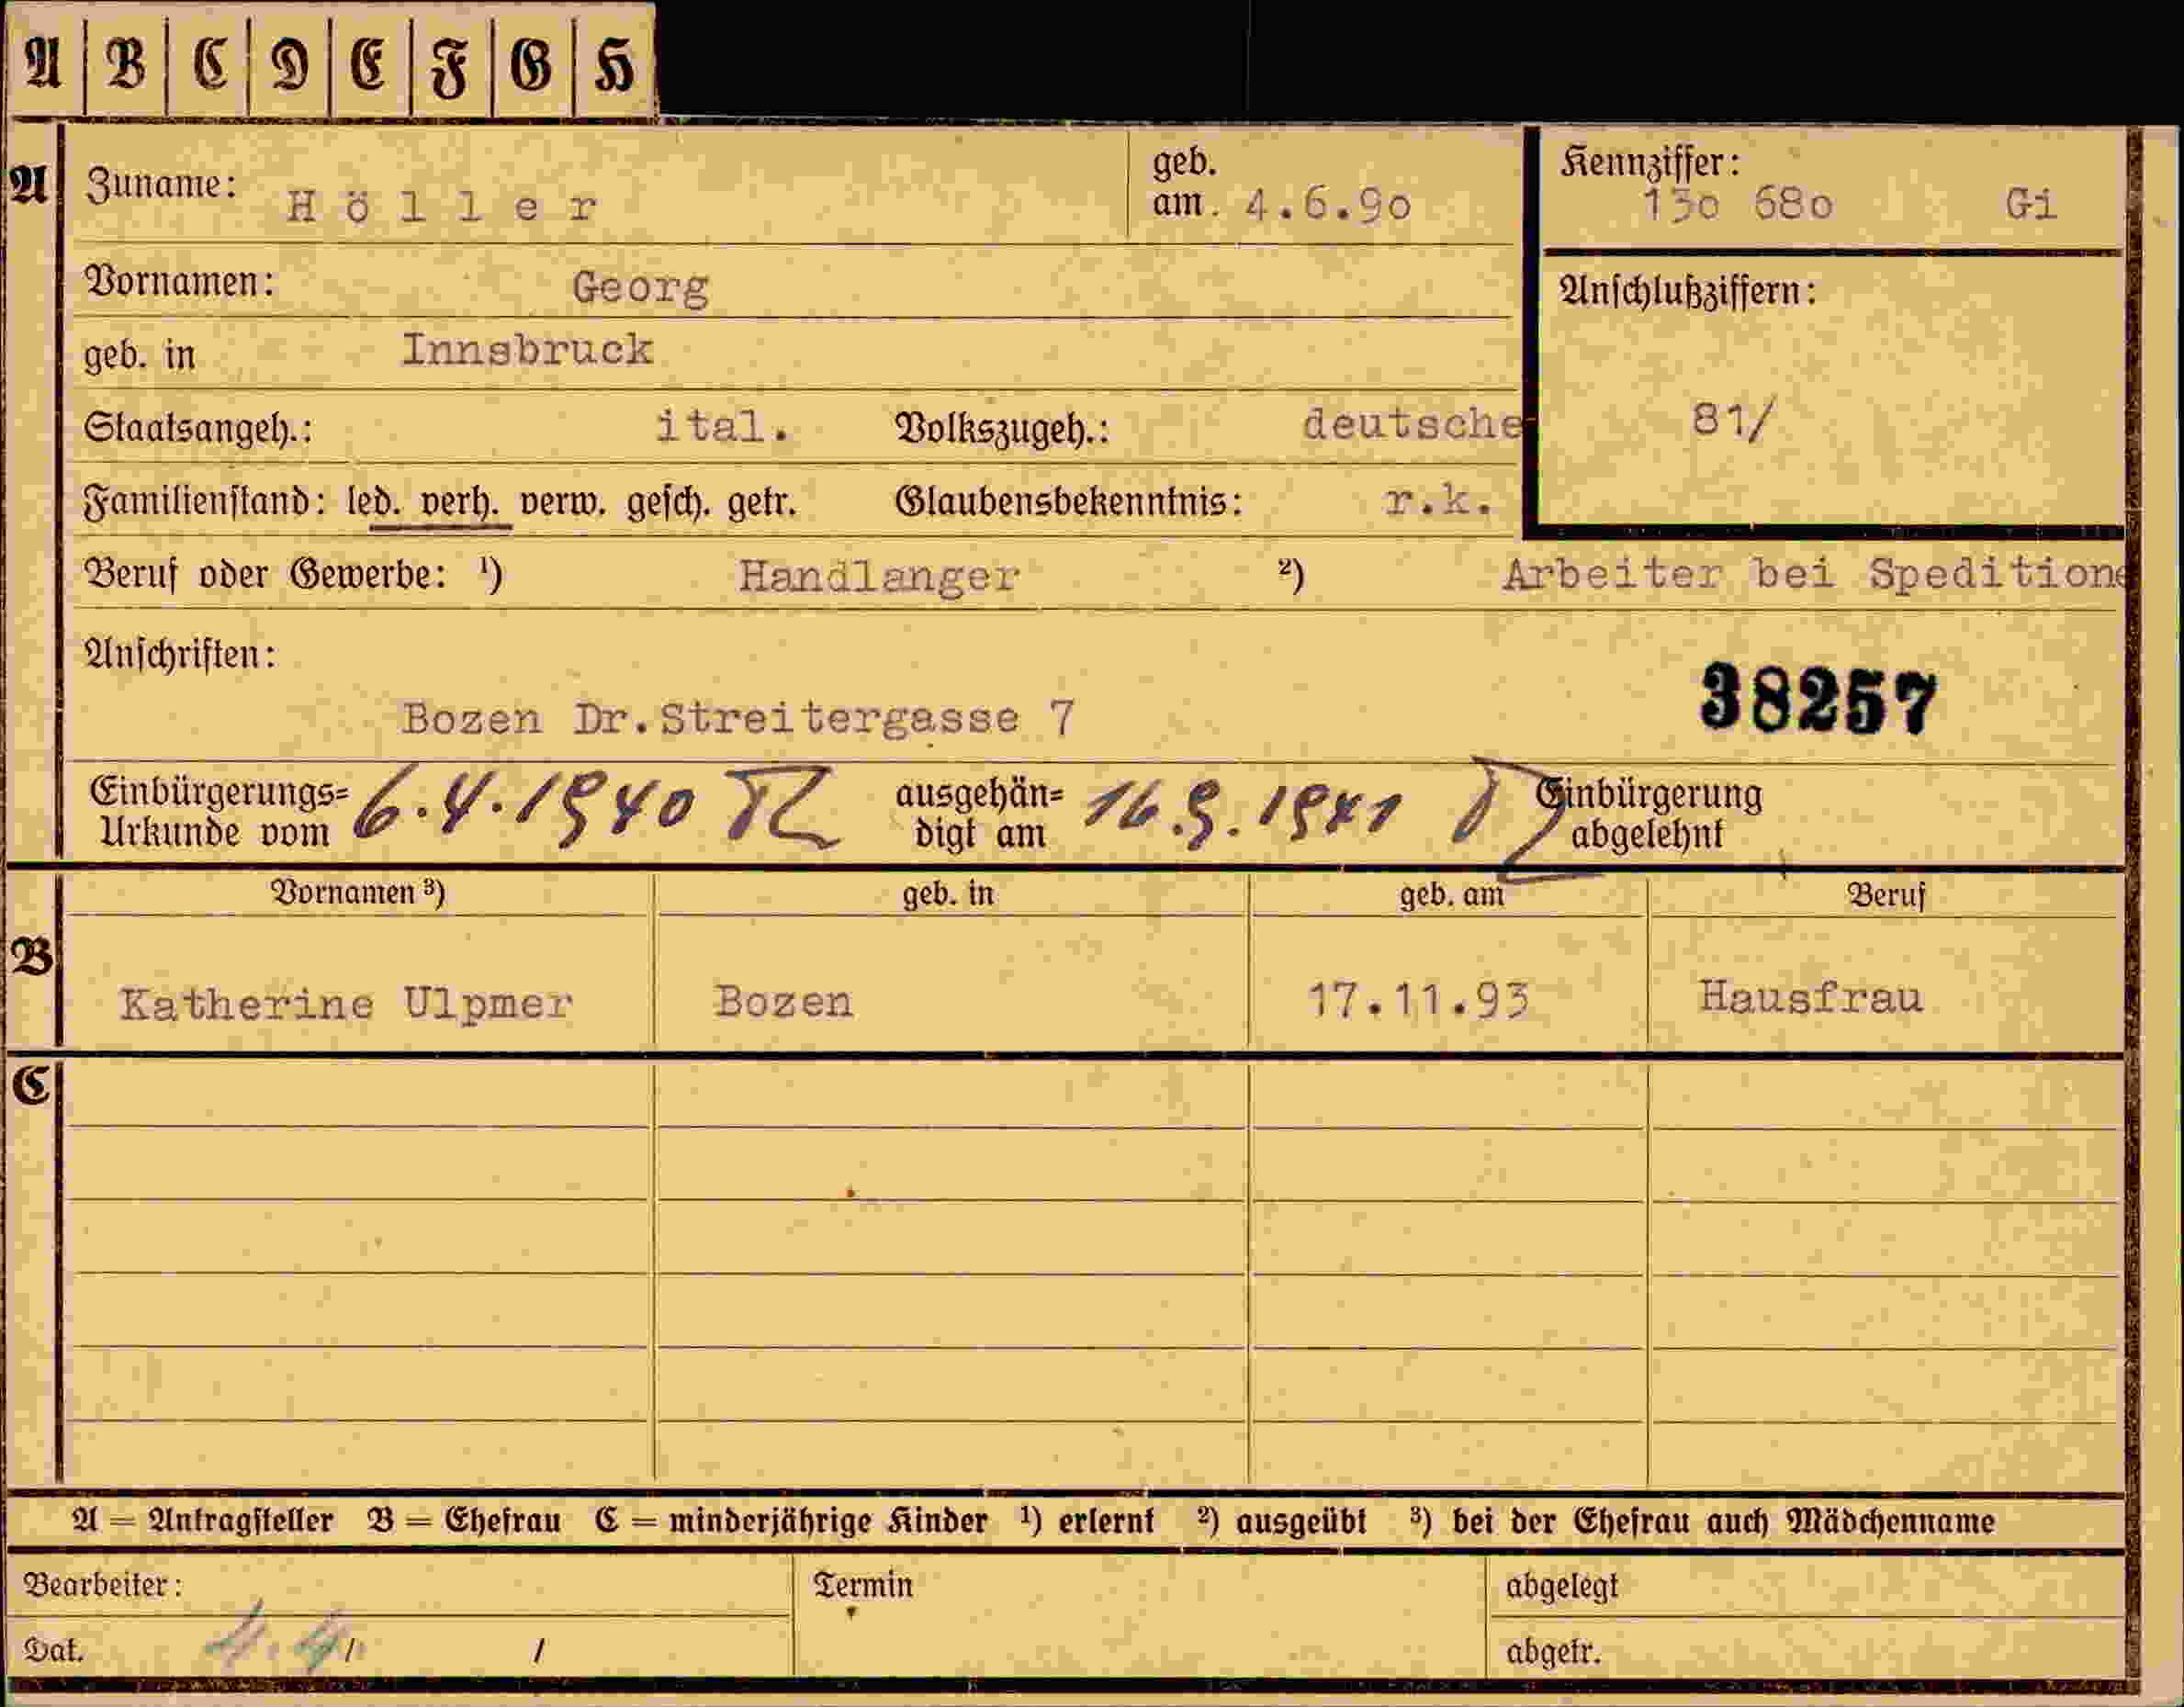 A B C D E F G H
A Zuname: Höller geb. am 4.6.90 Kennziffer: 130 680 Gi
Vornamen: Georg Anschlußziffern:
geb. in Innsbruck
Staatsangeh.: ital. Volkszugeh.: deutsche 81/
Familienstand: led. verh. verw. gesch. getr. Glaubensbekenntnis: r.k.
Beruf oder Gewerbe: ¹) Handlanger ²) Arbeiter bei Spedition
Anschriften:
38257
Bozen Dr.Streitergasse 7
Einbürgerungs=Urkunde vom 6.4.1940 ausgehän=digt am 16.9.1941 Einbürgerung abgelehnt
Vornamen ³) geb. in geb. am Beruf
B Katherine Ulpmer Bozen 17.11.93 Hausfrau
C
A = Antragsteller B = Ehefrau C = minderjährige Kinder ¹) erlernt ²) ausgeübt ³) bei der Ehefrau auch Mädchenname
Bearbeiter: Termin abgelegt
Dat. 4.4/ / abgetr.